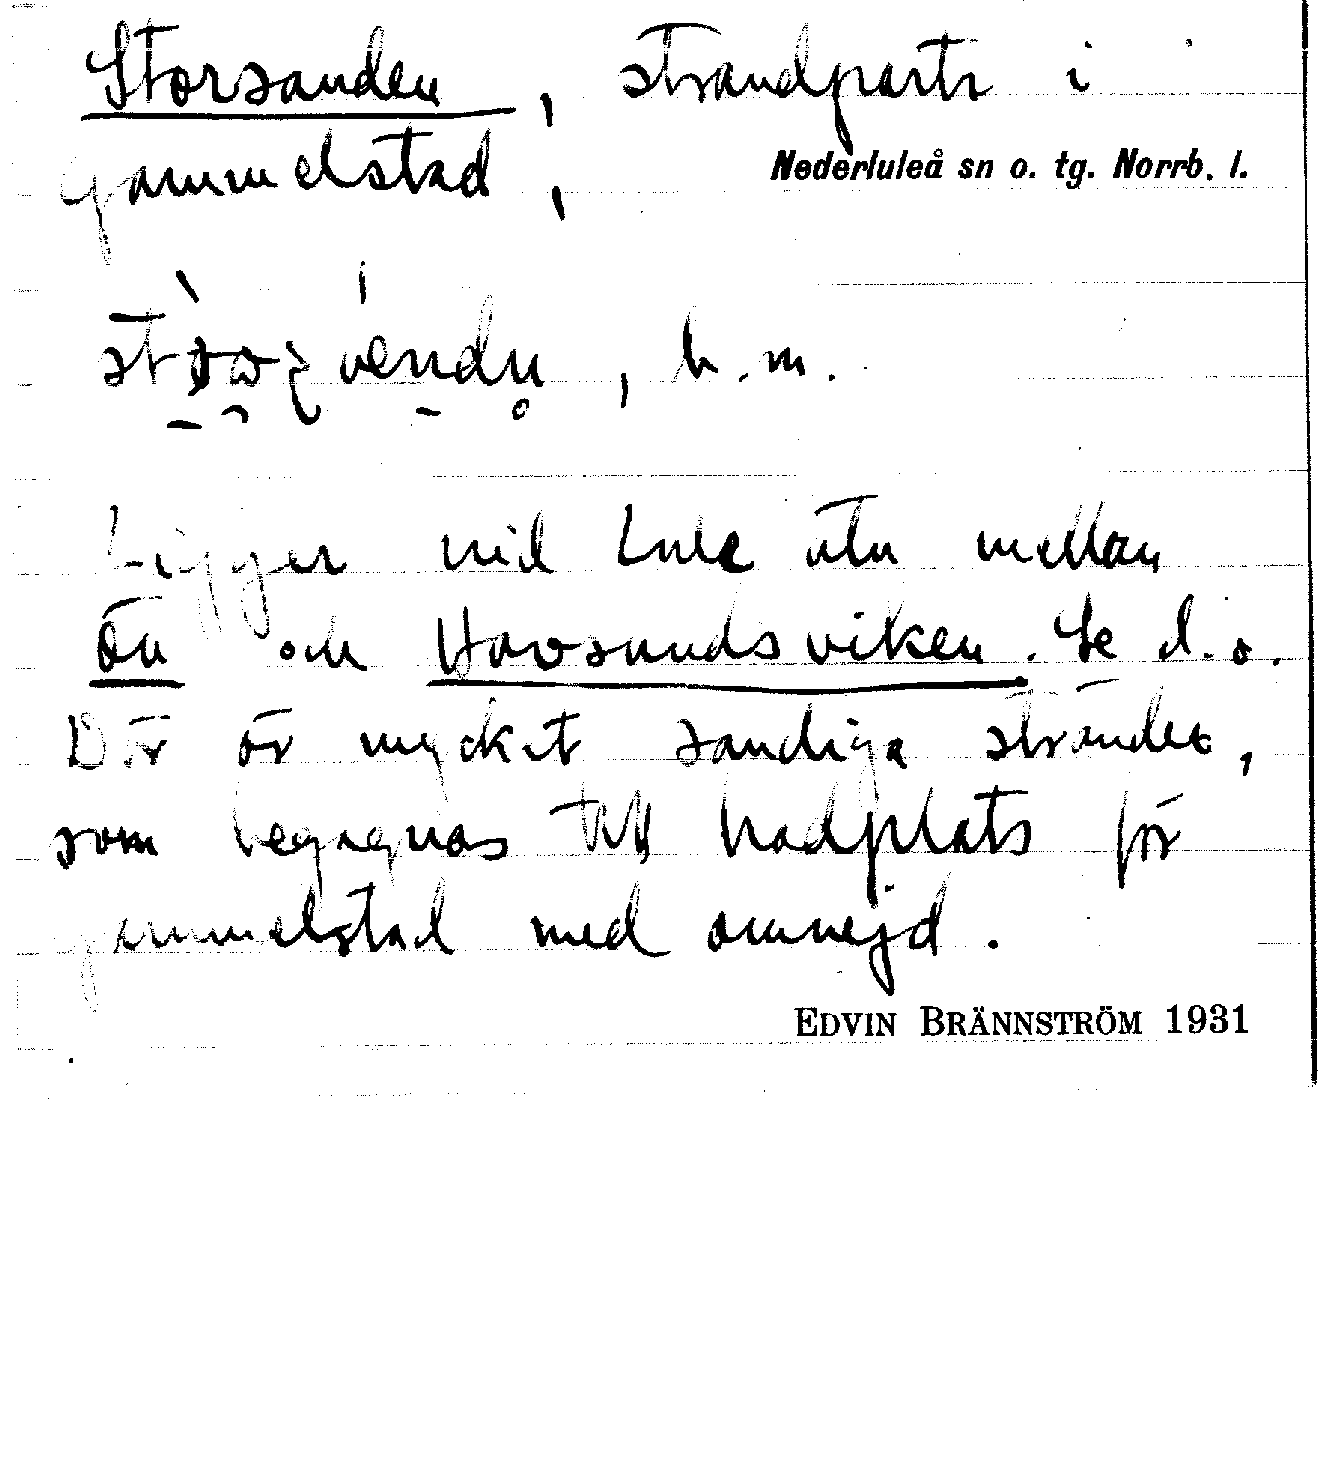 Storsanden, strandparti i
Gammelstad, Nederluleå sn o. tg. Norrb. l.
, b. m.
Ligger vid Lule älv mellan
Ön och Havsundsviken. Se d. o.
Där är mycket sandiga stränder,
som begagnas till badplats för
Gammelstad med omnejd.
EDVIN BRÄNNSTRÖM 1931